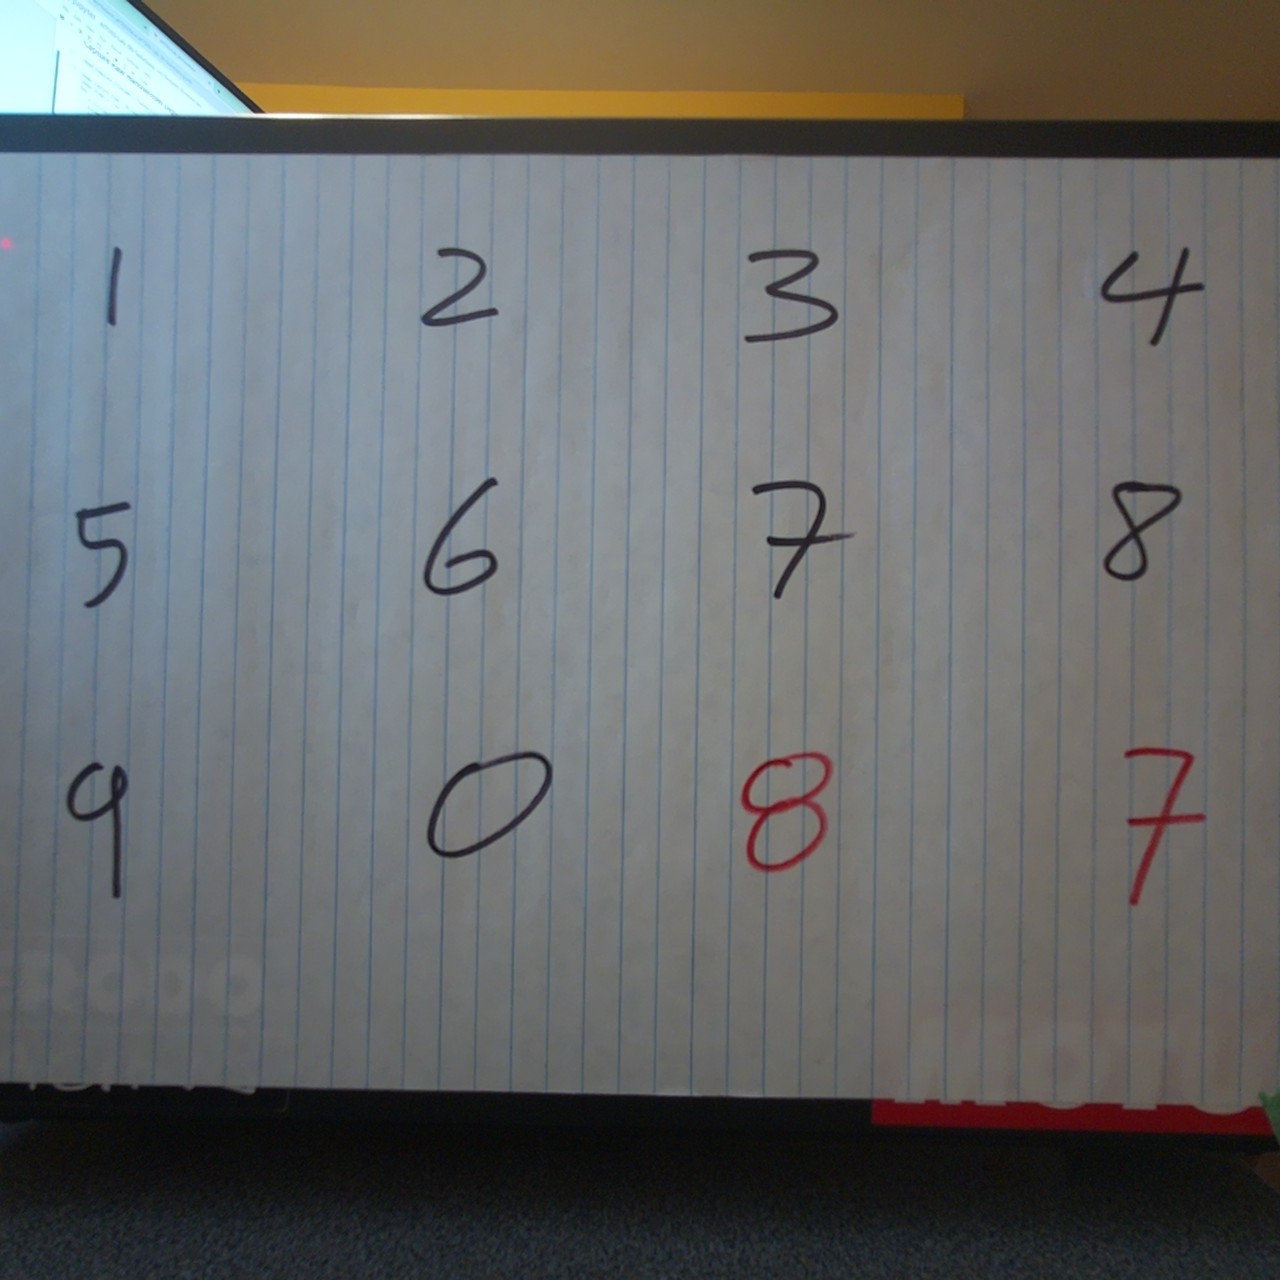 1 2 3 4
5 6 7 8
9 0 8 7